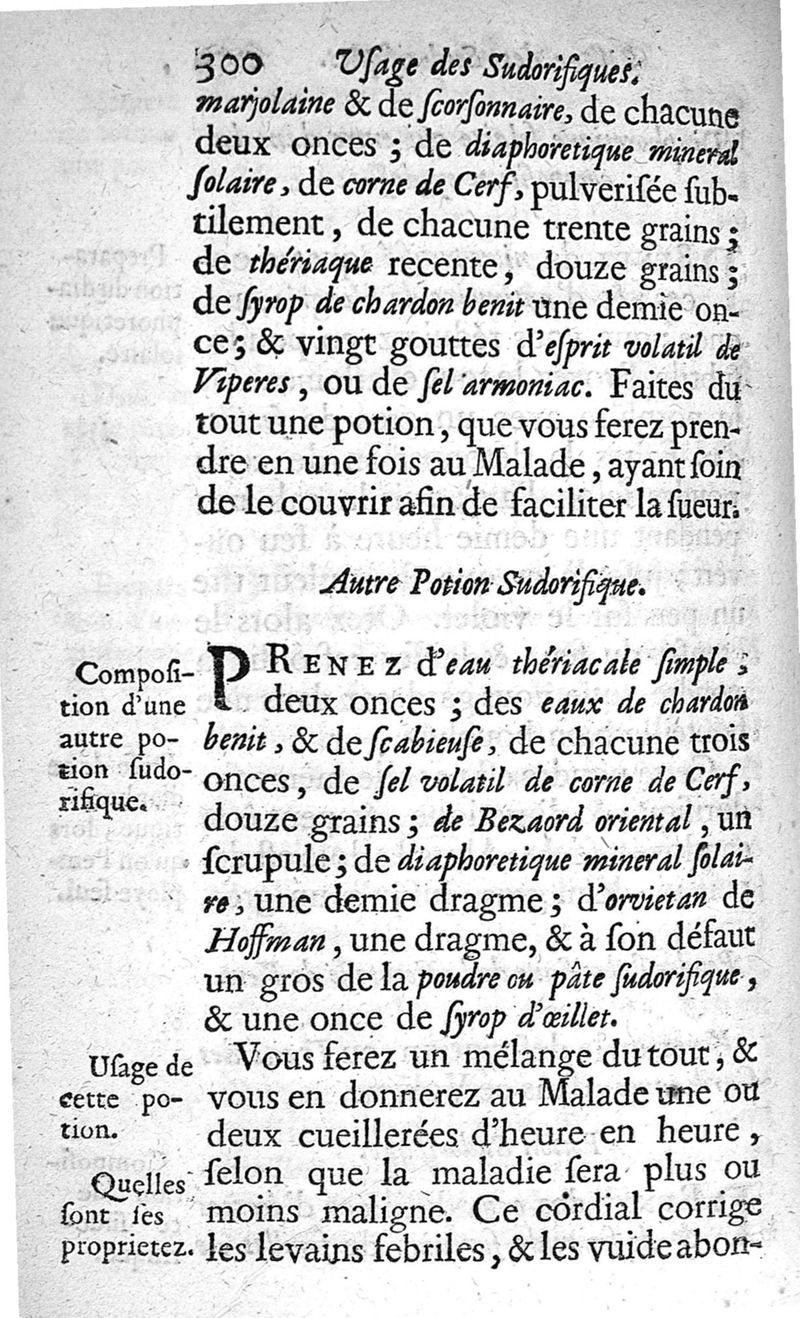 300 Uſage des Sudorifiques.
marjolaine & de ſcorſonnaire, de chacune
deux onces ; de diaphoretique mineral
ſolaire, de corne de Cerf, pulveriſée ſub-
tilement, de chacune trente grains ;
de thériaque recente, douze grains ;
de ſyrop de chardon benit une demie on-
ce ; & vingt gouttes d'eſprit volatil de
Viperes, ou de ſel armoniac. Faites du
tout une potion, que vous ferez pren-
dre en une fois au Malade, ayant ſoin
de le couvrir afin de faciliter la ſueur.
Autre Potion Sudorifique.
Compoſi-
tion d'une
autre po-
tion ſudo-
rifique.
PRENEZ d'eau thériacale ſimple ;
deux onces ; des eaux de chardon
benit, & de ſcabieuſe, de chacune trois
onces, de ſel volatil de corne de Cerf,
douze grains ; de Bezaord oriental, un
ſcrupule ; de diaphoretique mineral ſolai-
re, une demie dragme ; d'orvietan de
Hoffman, une dragme, & à ſon défaut
un gros de la poudre ou pâte ſudorifique,
& une once de ſyrop d'œillet.
Uſage de
cette po-
tion.
Vous ferez un mélange du tout, &
vous en donnerez au Malade une ou
deux cueillerées d'heure en heure,
ſelon que la maladie ſera plus ou
Quelles
ſont ſes
proprietez.
moins maligne. Ce cordial corrige
les levains febriles, & les vuide abon-